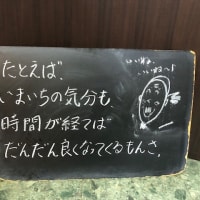 たとえば、
いまいちの気分も、
時間が経てば
だんだん良くなってくるもんさ。
いいね、
いいね〜♪